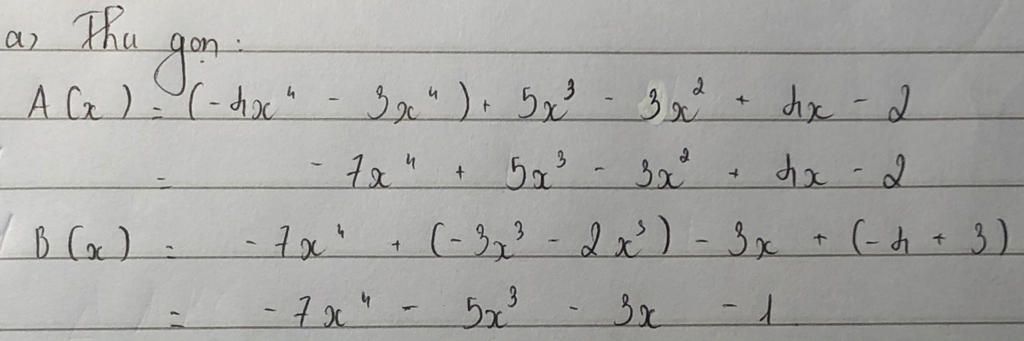 a) Thu gọn:
A(x) = (-4x⁴ - 3x⁴) + 5x³ - 3x² + 4x - 2
= -7x⁴ + 5x³ - 3x² + 4x - 2
B(x) = -7x⁴ + (-3x³ - 2x³) - 3x + (-4 + 3)
= -7x⁴ - 5x³ - 3x - 1